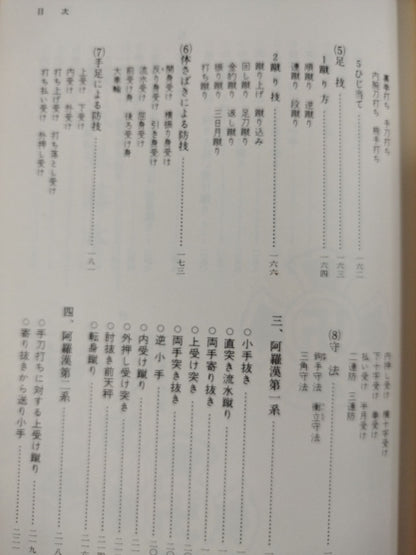 目次
裏拳打ち 手刀打ち
内腕刀打ち 熊手打ち
5 ひじ当て 一六二
(5) 足技 一六三
1 蹴り方 一六四
順蹴り 逆蹴り
連蹴り 段蹴り
2 蹴り技 一六六
蹴り上げ 蹴り込み
回し蹴り 足刀蹴り
金的蹴り 返し蹴り
振り蹴り 三日月蹴り
打ち蹴り
(6) 体さばきによる防技 一七三
開身受け 横振り身受け
反り身受け 引き身受け
流水受け 屈身受け
前受け身 後ろ受け身
大車輪
(7) 手足による防技 一八一
上受け 下受け
内受け 外受け
打ち上げ受け 打ち落とし受け
打ち払い受け 外押し受け
内押し受け 横十字受け
下十字受け 拳受け
払い受け 半月受け
二連防 三連防
(8) 守法
鉤手守法 衝立守法
三角守法
三、阿羅漢第一系
○小手抜き
○直突き流水蹴り
○両手寄り抜き
○上受け突き
○両手突き抜き
○逆小手
○内受け蹴り
○外押し受け突き
○肘抜き前天秤
○転身蹴り
四、阿羅漢第二系
○手刀打ちに対する上受け蹴り
○寄り抜きから送り小手